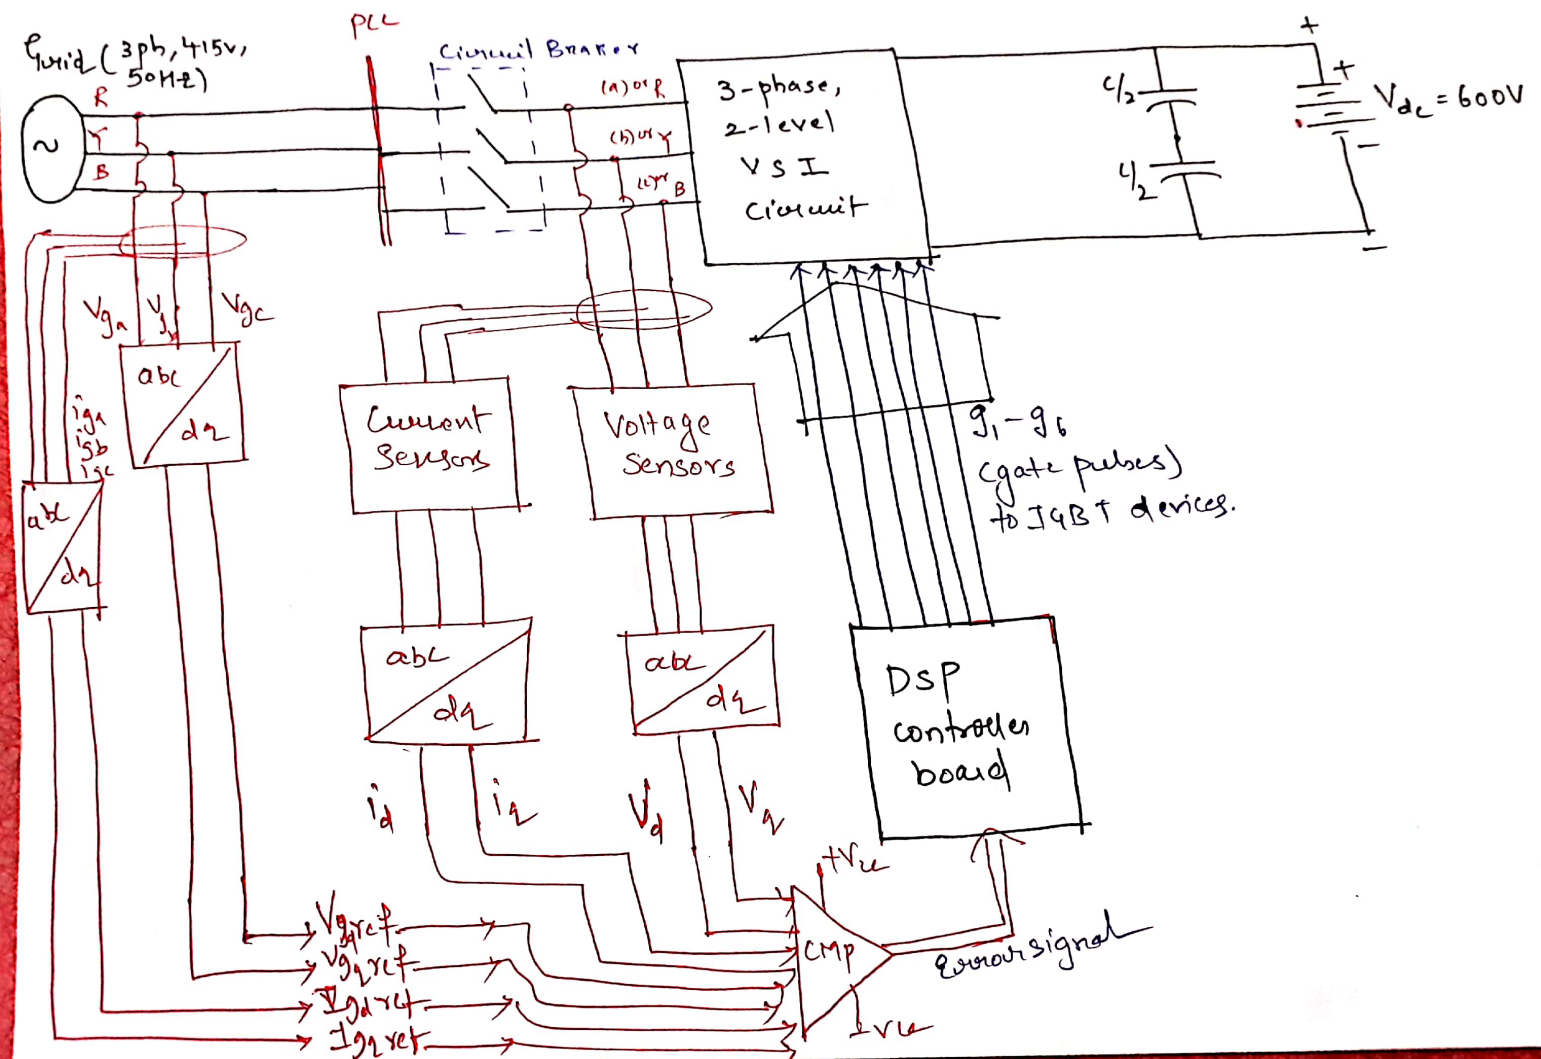 Grid (3ph, 415V,
50Hz)
PCC
Circuit Braker
R
Y
B
(a) or R
(b) or Y
(c) or B
3-phase,
2-level
VSI
Circuit
C/2
C/2
+
+
Vdc = 600V
-
-
Vga
Vgc
abc
dq
iga
igb
igc
abc
dq
Current
Sensors
Voltage
Sensors
g1-g6
(gate pulses)
to IGBT devices.
abc
dq
abc
dq
DSP
controller
board
id
iq
Vd
Vq
+Vcc
CMP
Error signal
Vgqref
Igdref
Igqref